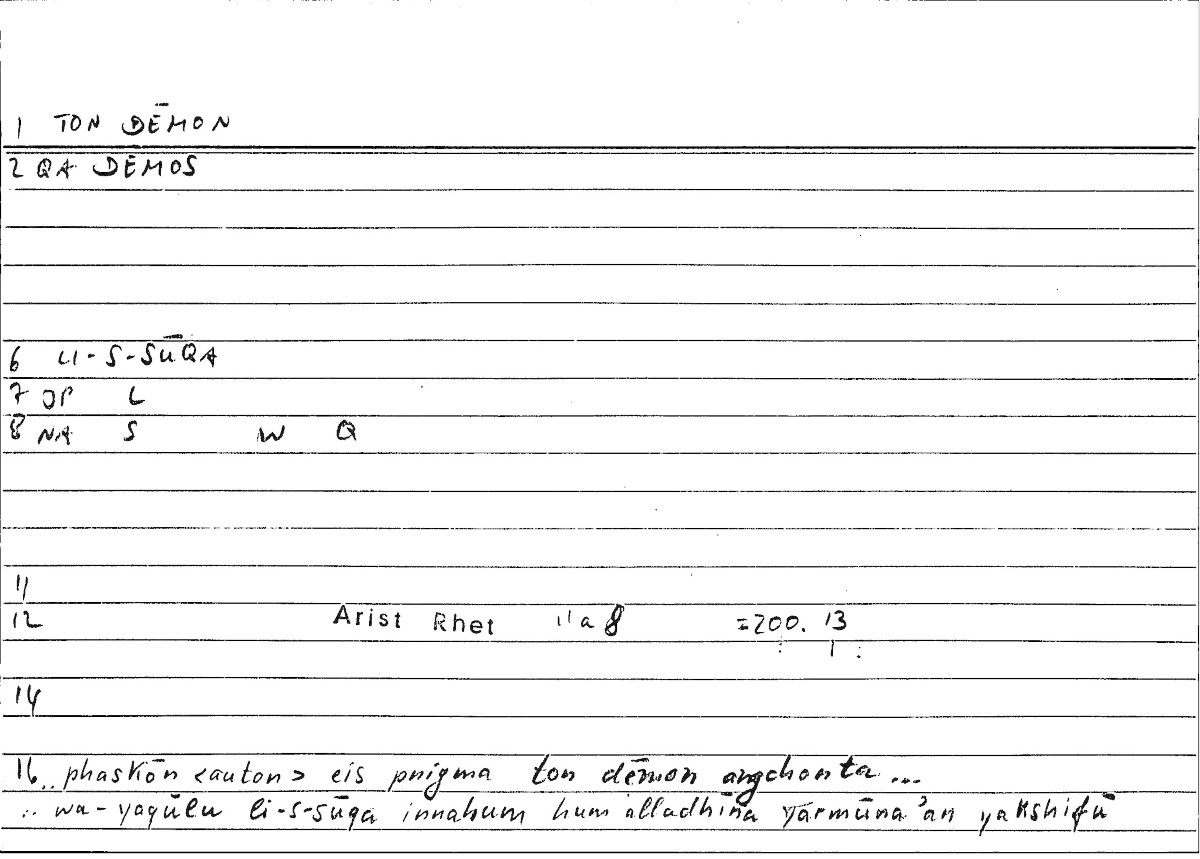 1 TON DĒMON
2 QA DĒMOS
6 LI-S-SŪQA
7 OP L
8 NA S W Q
11
12 Arist Rhet 11a8 =200.13
14
16.. phaskōn <auton> eis pnigma ton dēmon angchonta...
.. wa-yaqūlu li-s-sūqa innahum hum alladhīna yarmūna 'an yakshifū